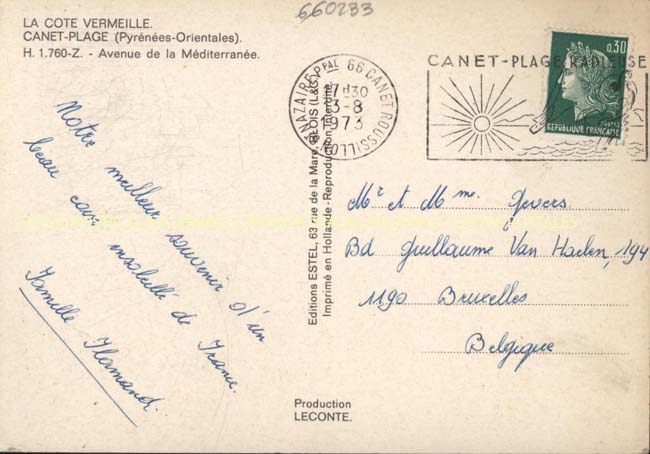 660233
LA COTE VERMEILLE.
CANET-PLAGE (Pyrénées-Orientales).
H. 1.760-Z. - Avenue de la Méditerranée.
Notre meilleur souvenir d'un
beau coin ensoleillé de France.
Famille Flamand.
Editions ESTEL, 63 rue de la Mare, BLOIS (L&C)
Imprimé en Hollande - Reproduction Interdite
NAZAIRE PPAL 66 CANET ROUSSILLON
17H30
3-8
1973
CANET-PLAGE RADIEUSE
0,30
POSTES
REPUBLIQUE FRANCAISE
Mr et Mme. Gevers.
Bd Guillaume Van Haelen, 194
1190 Bruxelles
Belgique
Production
LECONTE.